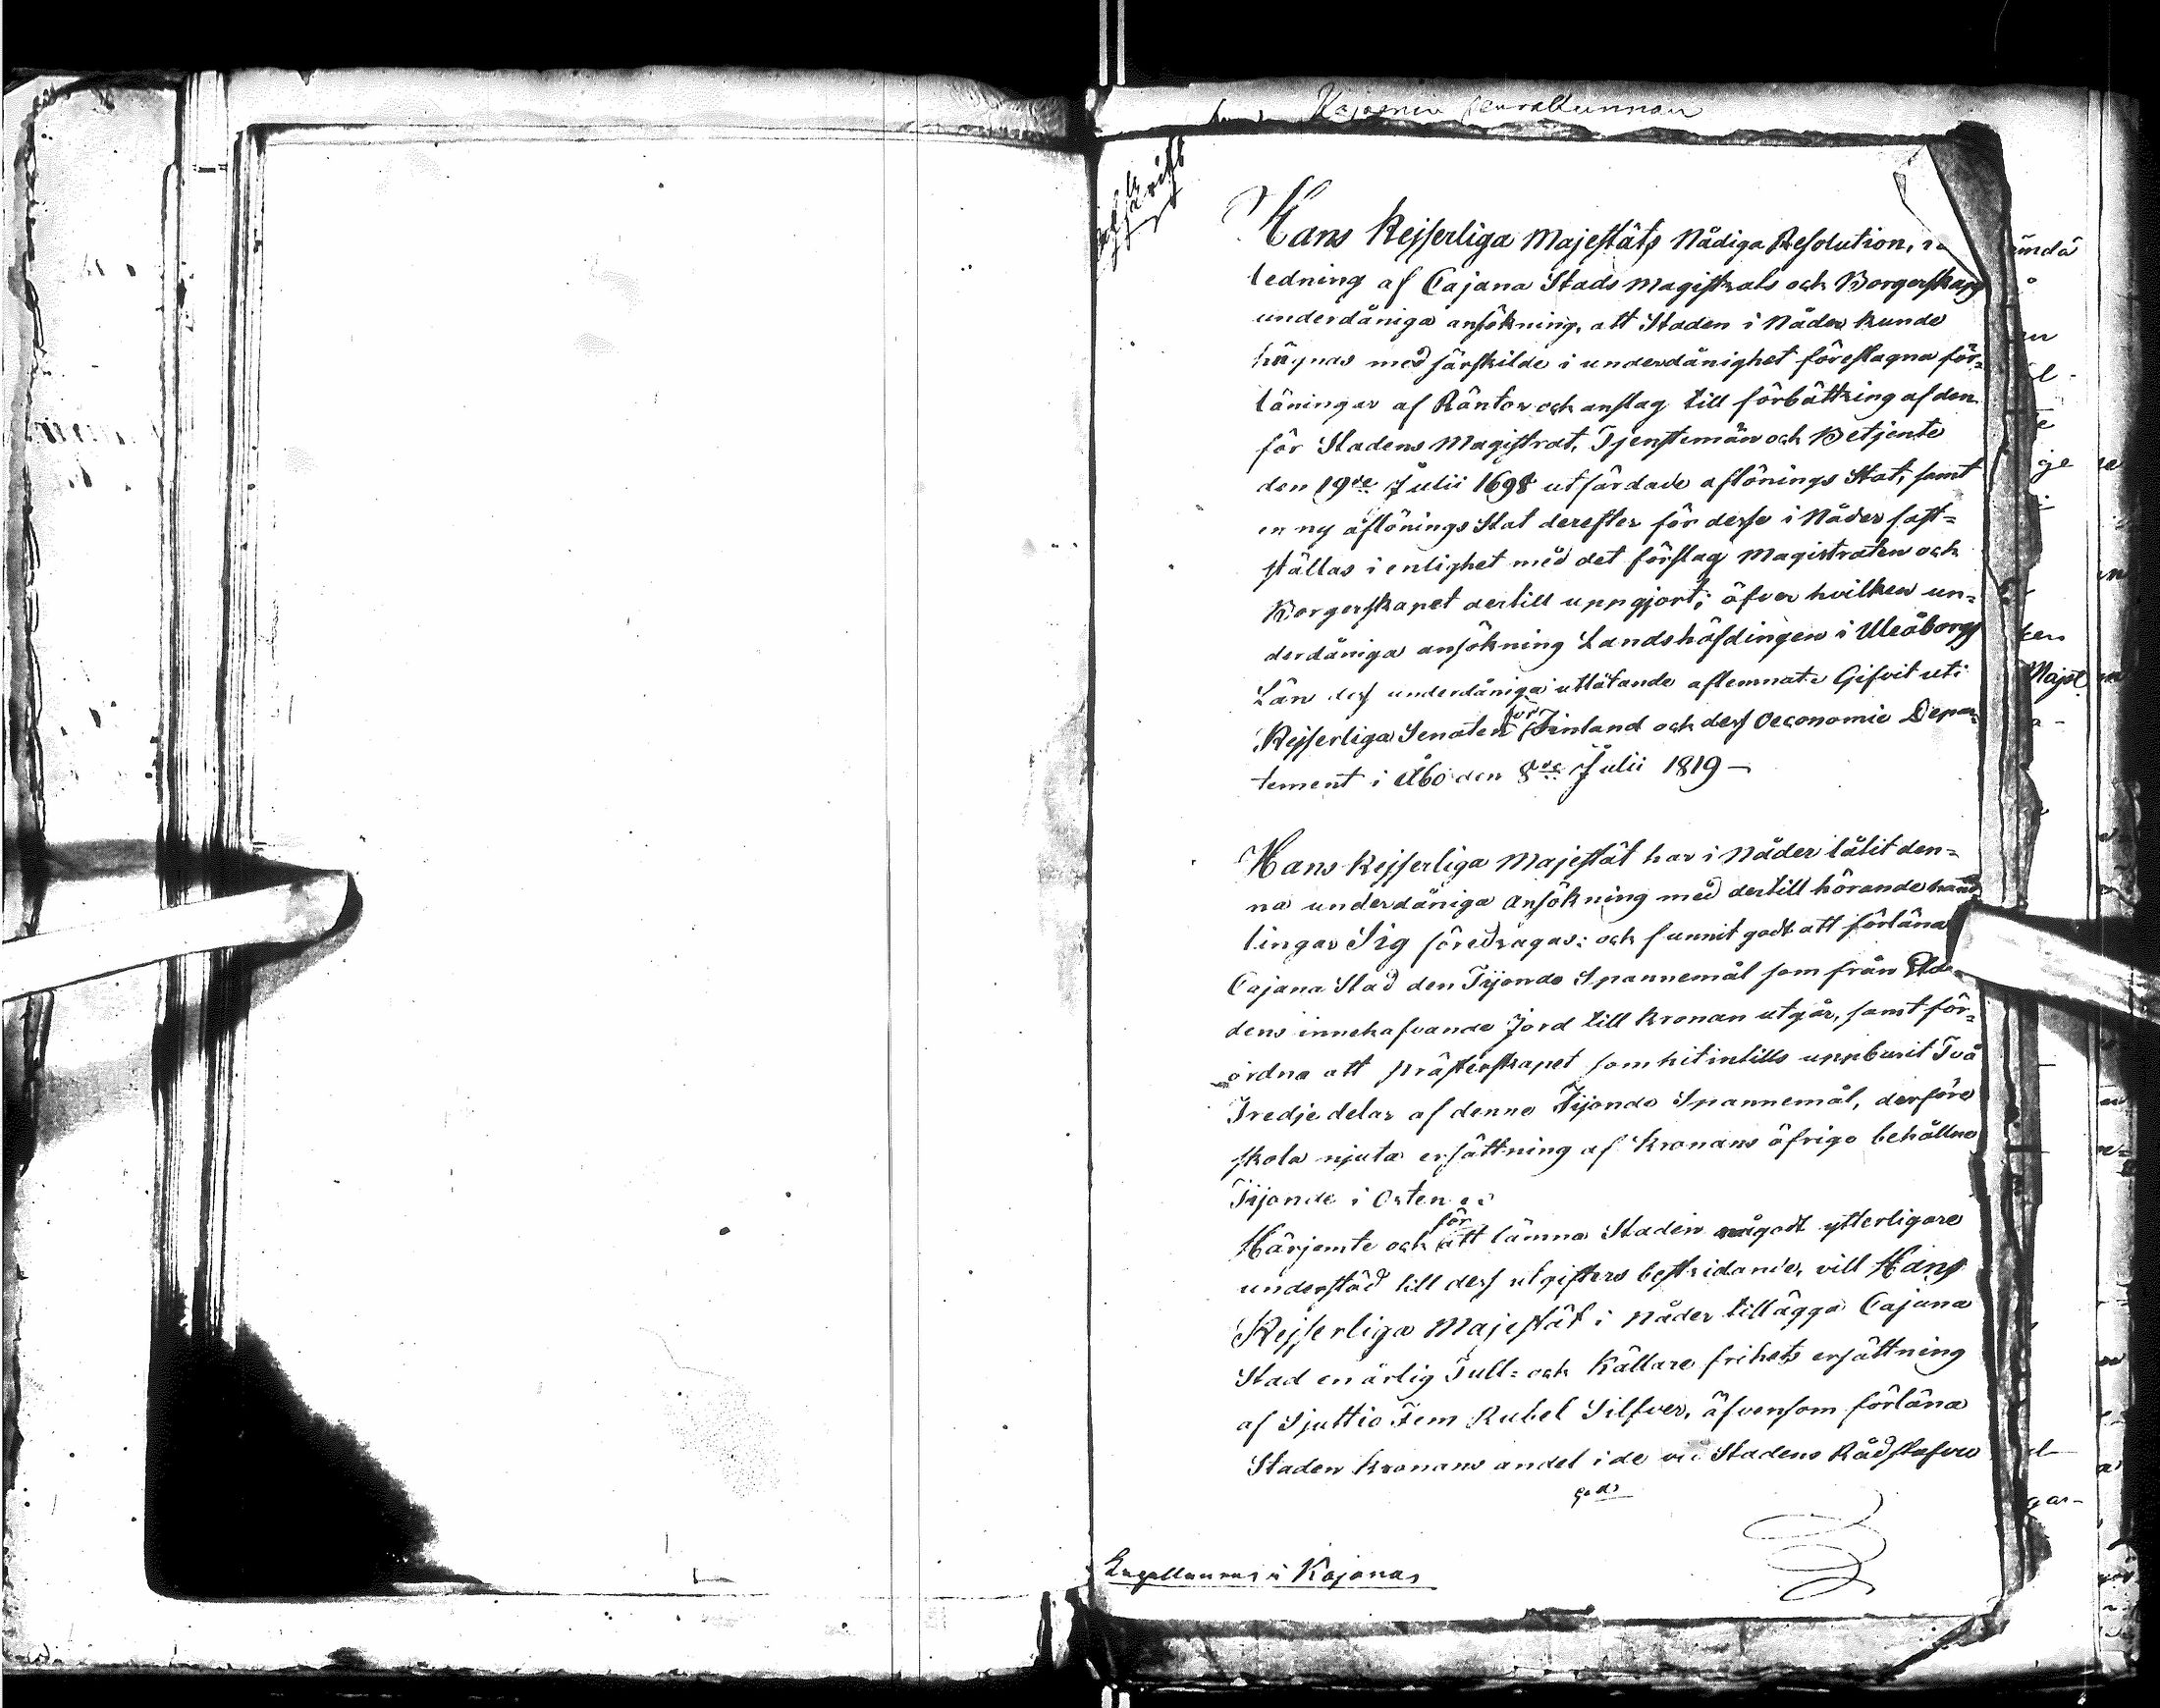 Kajaanin seurakunnan
afskrift
Hans Kejserliga Majestäts Nådiga Resolution,
ledning af Cajana Stads Magistrats och Borgerskaps
underdåniga ansökning, att Staden i Nåder kunde
hugnas med särskilde i underdånighet föreslagna för-
läningar af Räntor och anslag till förbättring af den
för Stadens Magistrat, Tjenstemän och Betjente
den 19de Julii 1698 utfärdade aflönings Stat, samt
en ny aflönings Stat derefter för desse i Nåder fast-
ställas i enlighet med det förslag Magistraten och
Borgerskapet dertill uppgjort; öfver hvilken un-
derdåniga ansökning Landshöfdingen i Uleåborgs
Län dess underdåniga utlåtande aflemnat. Gifvit uti
Kejserliga Senaten för Finland och dess Oeconomie Depar-
tement i Åbo den 8de Julii 1819 —
Hans Kejserliga Majestät har i Nåder låtit den-
na underdåniga ansökning med dertill hörande hand-
lingar Sig föredragas: och funnit godt att förläna
Cajana Stad den Tijonde Spannemål som från Sta-
dens innehafvande Jord till Kronan utgår, samt för-
ordna att presterskapet som hitintills uppburit Två
Tredje delar af denne Tijonde Spannemål, derföre
skola njuta ersättning af Kronans öfrige behållne
Tijonde i Orten
Härjemte och för att lämna Staden något ytterligare
understöd till dess utgifters bestridande, vill Hans
Kejserliga Majestät i Nåder tillägga Cajana
Stad en årlig Tull- och Källare frihets ersättning
af Sjuttio Fem Rubel Silfver, äfvensom förläna
Staden Kronans andel i de vid Stadens Rådstufvu
Kajanas